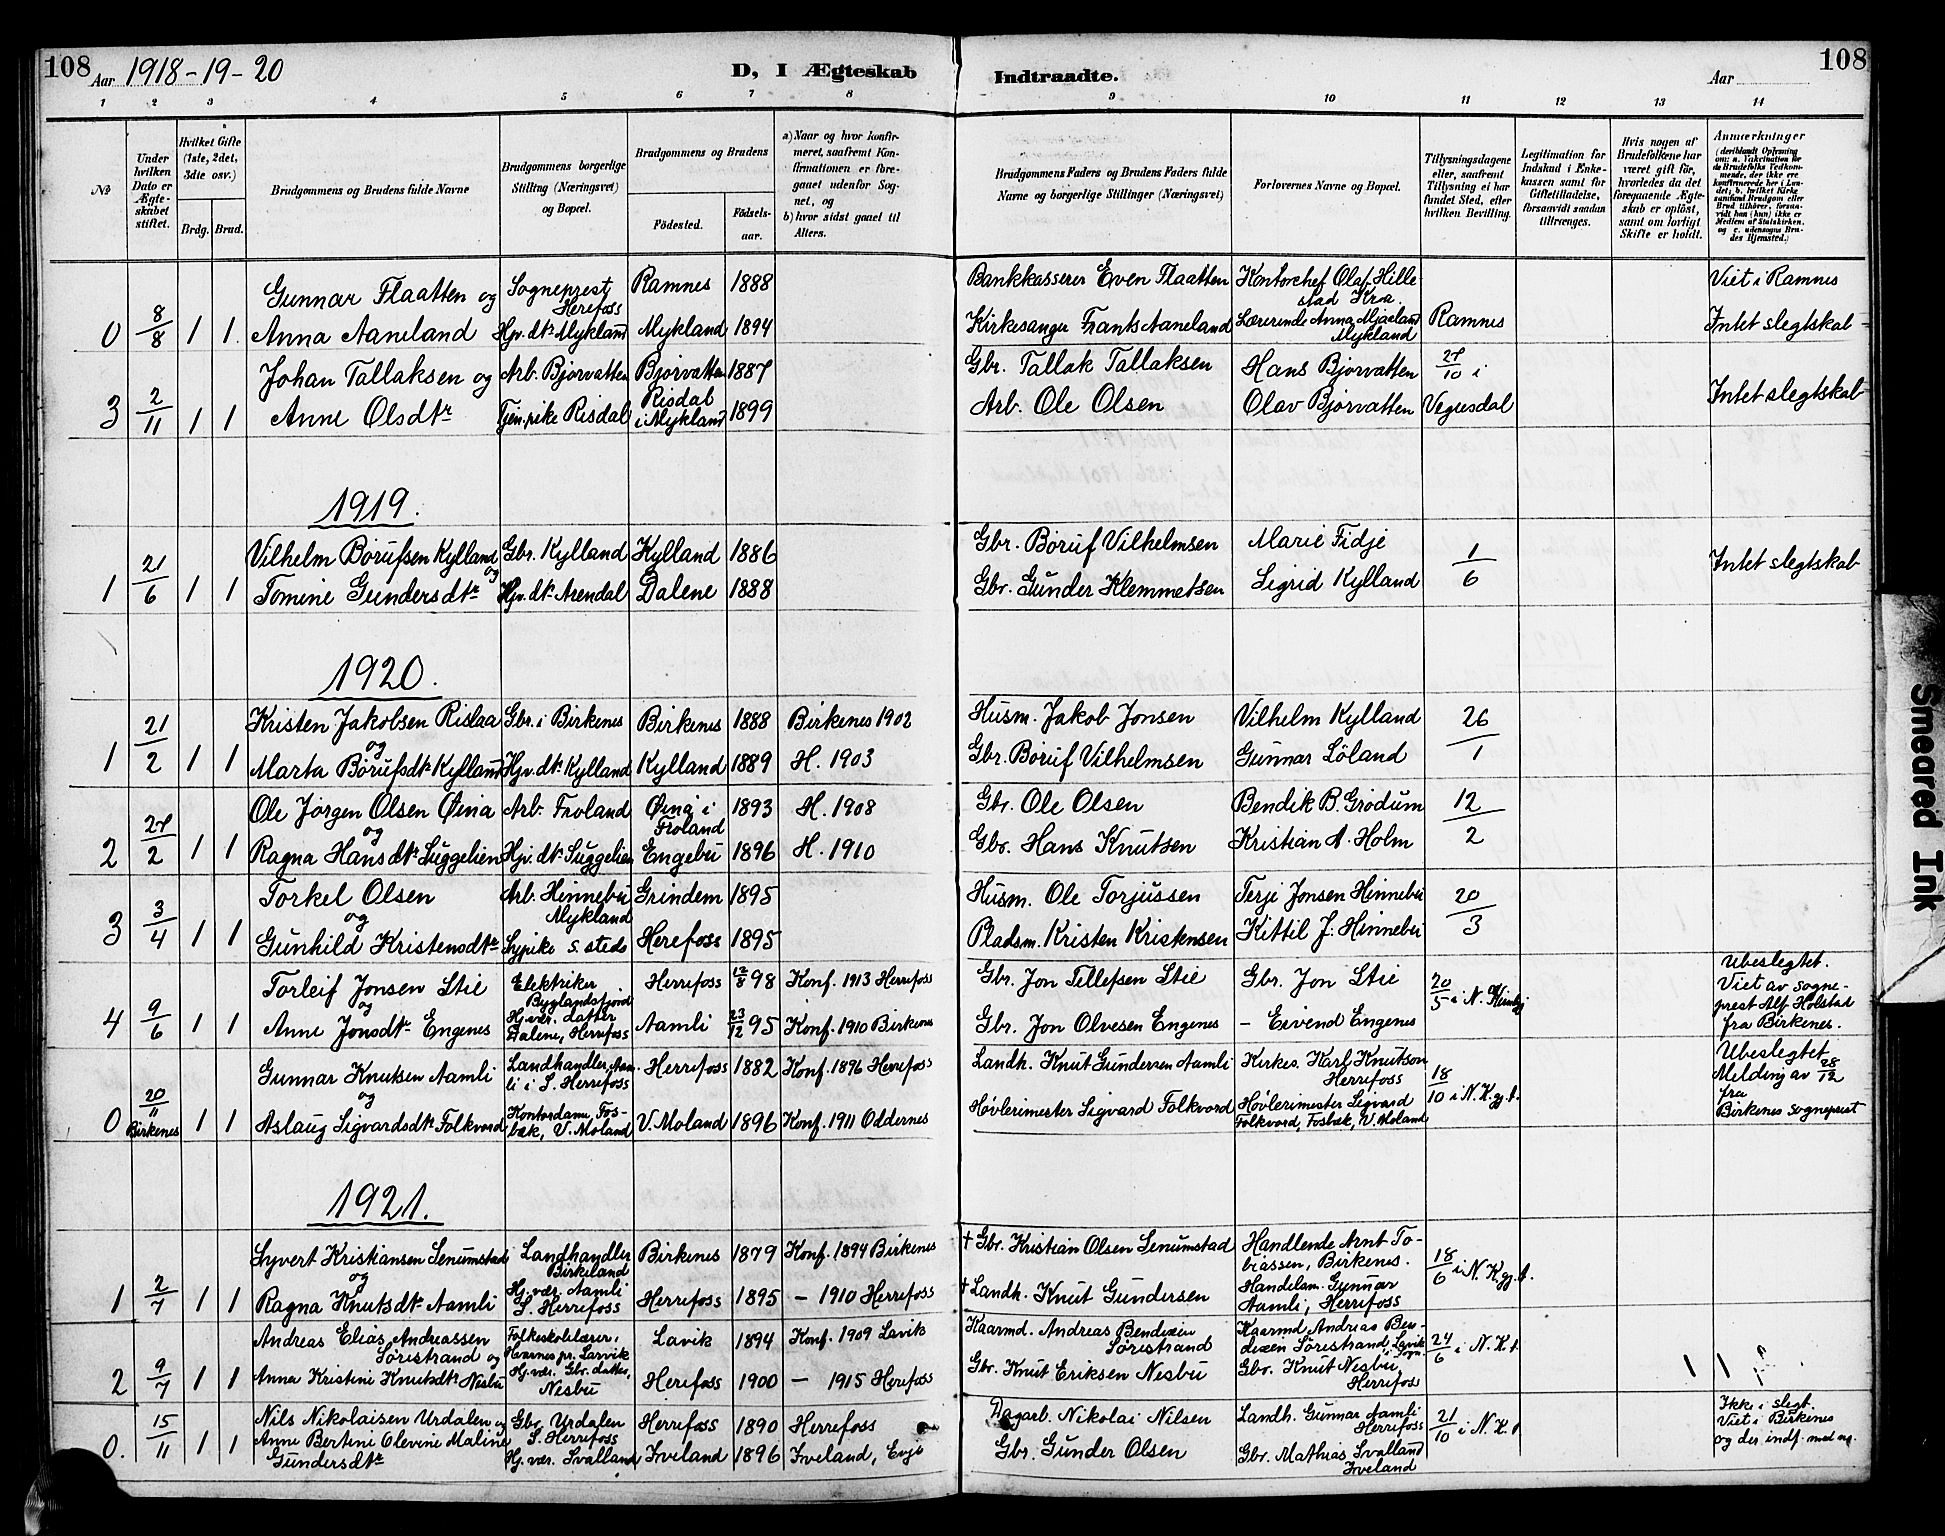 108 Aar 1918-19-20 D, I Ægteskab Indtraadte. Aar 108
1 2 3 4 5 6 7 8 9 10 11 12 13 14
No
Under hvilken Dato er Ægteskabet stiftet.
Hvilket Gifte (1ste, 2det, 3die osv.)
Brdg. Brud.
Brudgommens og Brudens fulde Navne
Brudgommens borgerlige Stilling (Næringsvei) og Bopæl.
Brudgommens og Brudens
Fødested.
Fødselsaar.
a) Naar og hvor konfirmeret, saafremt Konfirmationen er foregaaet udenfor Sognet, og
b) hvor sidst gaaet til Alters.
Brudgommens Faders og Brudens Faders fulde Navne og borgerlige Stillinger (Næringsvei)
Forlovernes Navne og Bopæl.
Tillysningsdagene eller, saafremt Tillysning ei har fundet Sted, efter hvilken Bevilling.
Legitimation for Indskud i Enkekassen samt for Giftetilladelse, forsaavidt saadan tiltrænges.
Hvis nogen af Brudefolkene har været gift før, hvorledes da det foregaaende Ægteskab er opløst, samt om lovligt Skifte er holdt.
Anmærkninger
(deriblandt Oplysning om: a. Vakcination for de Brudefolks Vedkommende, der ikke ere konfirmerede her i Landet; b. hvilket Kirkesamfund Brudgom eller Brud tilhører, forsaavidt han (hun) ikke er Medlem af Statskirken, og c. udensogns Brudes Hjemsted.)
Gunnar Flaatten og Sogneprest Herefoss Ramnes 1888 Bankkasserer Even Flaatten Kontorchef Olaf Hillestad Kra. Viet i Ramnes
0 8/8 1 1. Anna Aaneland Hjv. dtr Mykland Mykland 1894 Kirkesanger Frants Aaneland Lærerinde Anna Mjaaland Mykland Ramnes Intet slegtskab
Johan Tallaksen og Arb. Bjorvatten Bjorvatten 1887 Gbr. Tallak Tallaksen Hans Bjorvatten 27/10 i
3 2/11 1 1 Anne Olsdtr Tjen.pike Risdal Risdal i Mykland 1899 Arb. Ole Olsen Olav Bjorvatten Vegusdal Intet slegtskab
1919.
Vilhelm Børufsen Kylland og Gbr. Kylland Kylland 1886 Gbr. Børuf Vilhelmsen Marie Fidje 1/6
1 21/6 1 1 Tomine Gundersdtr Hjv. dtr Arendal Dalene 1888 Gbr. Gunder Klemmetsen Sigrid Kylland Intet slegtskab
1920.
Kristen Jakobsen Rislaa og Gbr. i Birkenes Birkenes 1888 Birkenes 1902 Husm. Jakob Jonsen Vilhelm Kylland 26/1
1 21/2 1 1 Marta Børufsdtr Kylland Hjv. dtr Kylland Kylland 1889 H. 1903 Gbr. Børuf Vilhelmsen Gunnar Løland
Ole Jørgen Olsen Øina og Arb. Froland Øina i Froland 1893 H. 1908 Gbr. Ole Olsen Bendik B. Grødum 12/2
2 27/2 1 1 Ragna Hansdtr Suggelien Hjv. dtr Suggelien Engebu 1896 H. 1910 Gbr. Hans Knutsen Kristian A. Holm
Torkel Olsen og Arb. Hinnebu Mykland Grindem 1895 Husm. Ole Torjussen Terje Jonsen Hinnebu 20/3
3 3/4 1 1 Gunhild Kristensdtr Sypike s. steds Herefoss 1895 Pladsm. Kristen Kristensen Kittil J. Hinnebu
Torleif Jonsen Stie og Elektriker Byglandsfjord Herrefoss 12/8 98 Konf. 1913 Herrefoss Gbr. Jon Tellefsen Stie Gbr. Jon Stie 20/5 i N. Ubeslegtet. Viet av sogneprest Alf Holstad fra Birkenes.
4 9/6 1 1 Anne Jonsdtr Engenes Hj. vær. datter Dalene, Herrefoss Aamli 23/12 95 Konf. 1910 Birkenes Gbr. Jon Olvesen Engenes - Eivend Engenes
Gunnar Knutsen Aamli og Landhandler, Aamli i S. Herrefoss Herrefoss 1882 Konf. 1896 Herrefoss Landh. Knut Gundersen Aamli Kirkes. Karl Knutson Herrefoss 18/10 i N. K. gj. t. Ubeslegtet Melding av 28/12 fra Birkenes sogneprest
0 20/11 Birkenes 1 1 Aslaug Sigvardsdtr Folkvord Kontordame, Fosbæk, V. Moland V. Moland 1896 Konf. 1911 Oddernes Høvlerimester Sigvard Folkvord Høvlerimester Sigvard Folkvord, Fosbæk, V. Moland
1921.
Syvert Kristiansen Senumstad og Landhandler Birkeland Birkenes 1879 Konf. 1894 Birkenes † Gbr. Kristian Olsen Senumstad Handlende Arnt Tobiassen, Birkenes. 18/6 i N. K. gj. t.
1 2/7 1 1 Ragna Knutsdtr Aamli Hj. vær. Aamli S. Herrefoss Herrefoss 1895 - 1910 Herrefoss † Landh. Knut Gundersen Handelsm. Gunnar Aamli, Herrefoss
Andreas Elias Andreassen Søristrand og Folkeskolelærer, pr. Larvik Lavik 1894 Konf. 1909 Lavik Kaarmd. Andreas Bendixen Søristrand Kaarmd Andreas Bendixen Søristrand, Lavik i Sogn 24/6 i N. K. t.
2 9/7 1 1 Anna Kristine Knutsdtr Nesbu Hj. vær. Gbr. datter, Nesbu Herefoss 1900 - 1915 Herefoss Gbr. Knut Eriksen Nesbu Gbr. Knut Nesbu, Herrefoss
Nils Nikolaisen Urdalen og Gbr. Urdalen S. Herrefoss Herrefoss 1890 Herrefoss Dagarb. Nikolai Nilsen Landh. Gunnar Aamli Herrefoss 21/10 i N. K. t Ikke i slegt. Viet i Birkenes og der indf. med no.
0. 15/11 1 1 Anne Bertine Olevine Maline Gundersdtr Hj. vær. Svalland Iveland 1896 Iveland, Evje Gbr. Gunder Olsen Gbr. Mathias Svalland Iveland
Smeared Ink